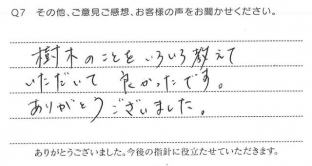 Q7 その他、ご意見ご感想、お客様の声をお聞かせください。
樹木のことをいろいろ教えて
いただいて 良かったです。
ありがとうございました。
ありがとうございました。今後の指針に役立たせていただきます。